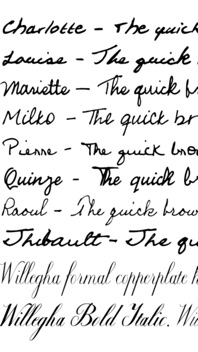 Charlotte - The quick
Louise - The quick
Mariette - The quick b
Milko - The quick br
Pierre - The quick brow
Quinze - The quick b
Raoul - The quick brow
Thibault - The qu
Willegha formal copperplate h
Willegha Bold Italic. Wi